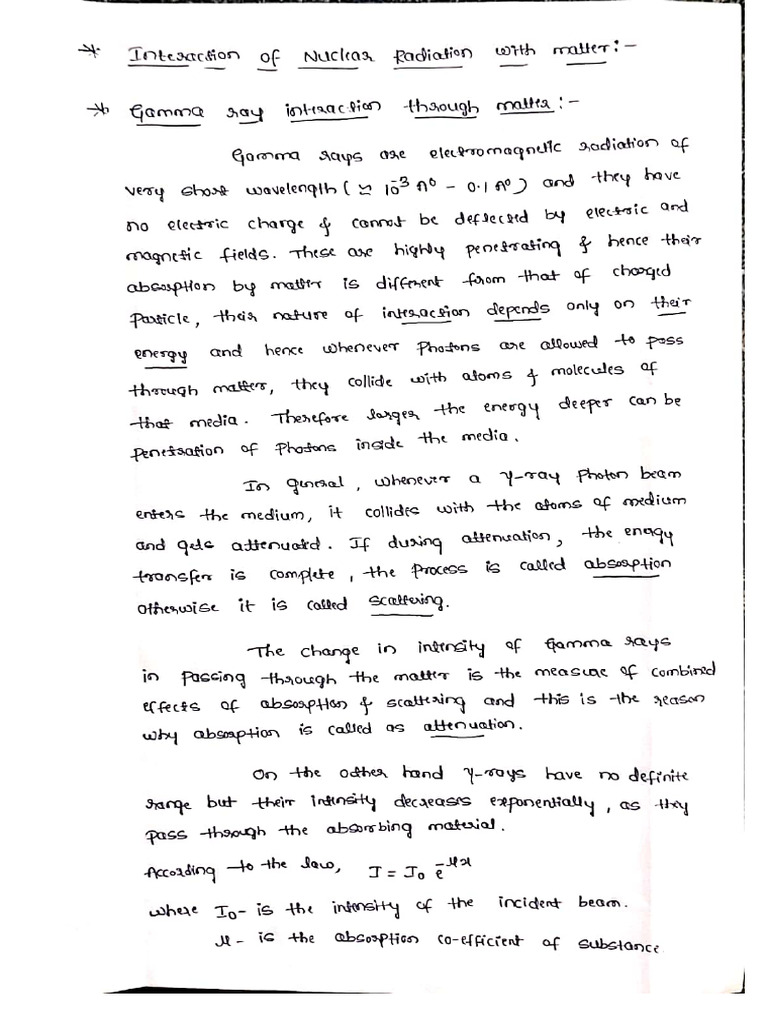 * Interaction of Nuclear Radiation with matter:-
* Gamma ray interaction through matter:-
Gamma rays are electromagnetic radiation of
very short wavelength (≃ 10⁻³ A⁰ - 0.1 A⁰) and they have
no electric charge & cannot be deflected by electric and
magnetic fields. These are highly penetrating & hence their
absorption by matter is different from that of charged
Particle, their nature of interaction depends only on their
energy and hence whenever Photons are allowed to pass
through matter, they collide with atoms & molecules of
that media. Therefore larger the energy deeper can be
penetration of Photons inside the media.
In general, whenever a γ-ray Photon beam
enters the medium, it collides with the atoms of medium
and gets attenuated. If during attenuation, the energy
transfer is complete, the process is called absorption
otherwise it is called scattering.
The change in intensity of Gamma rays
in passing through the matter is the measure of combined
effects of absorption & scattering and this is the reason
why absorption is called as attenuation.
On the other hand γ-rays have no definite
range but their intensity decreases exponentially, as they
pass through the absorbing material.
According to the law, I = I₀ e^-μx
where I₀- is the intensity of the incident beam.
μ - is the absorption co-efficient of substance